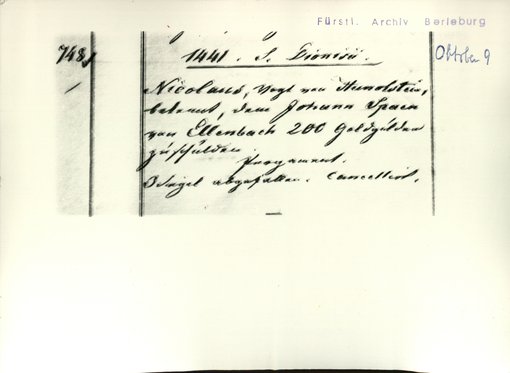 Fürstl. Archiv Berleburg
Oktober 9
748,
1441. S. Dionisii.
Nicolaus, Vogt von Hunolstein,
bekennt, dem Johann Spaen
von Ellenbach 200 Goldgülden
zu schülden.
Pergament.
3 Siegel abgefallen. Cancellirt.